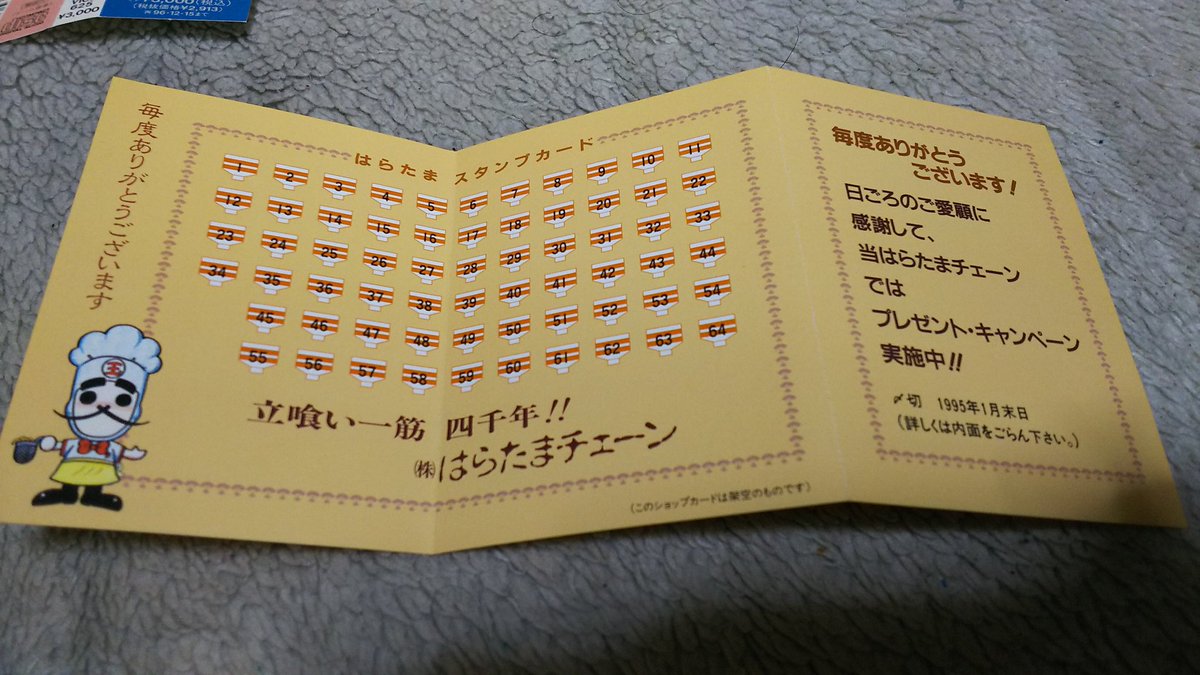 625
¥3,000
(税込)
(税抜価格¥2,913)
96-12-15まで
毎度ありがとうございます
はらたまスタンプカード
1 2 3 4 5 6 7 8 9 10 11
12 13 14 15 16 17 18 19 20 21 22
23 24 25 26 27 28 29 30 31 32 33
34 35 36 37 38 39 40 41 42 43 44
45 46 47 48 49 50 51 52 53 54
55 56 57 58 59 60 61 62 63 64
立喰い一筋 四千年!!
㈱はらたまチェーン
(このショップカードは架空のものです)
玉
毎度ありがとう
ございます!
日ごろのご愛顧に
感謝して、
当はらたまチェーン
では
プレゼント・キャンペーン
実施中!!
〆切 1995年1月末日
(詳しくは内面をごらん下さい。)